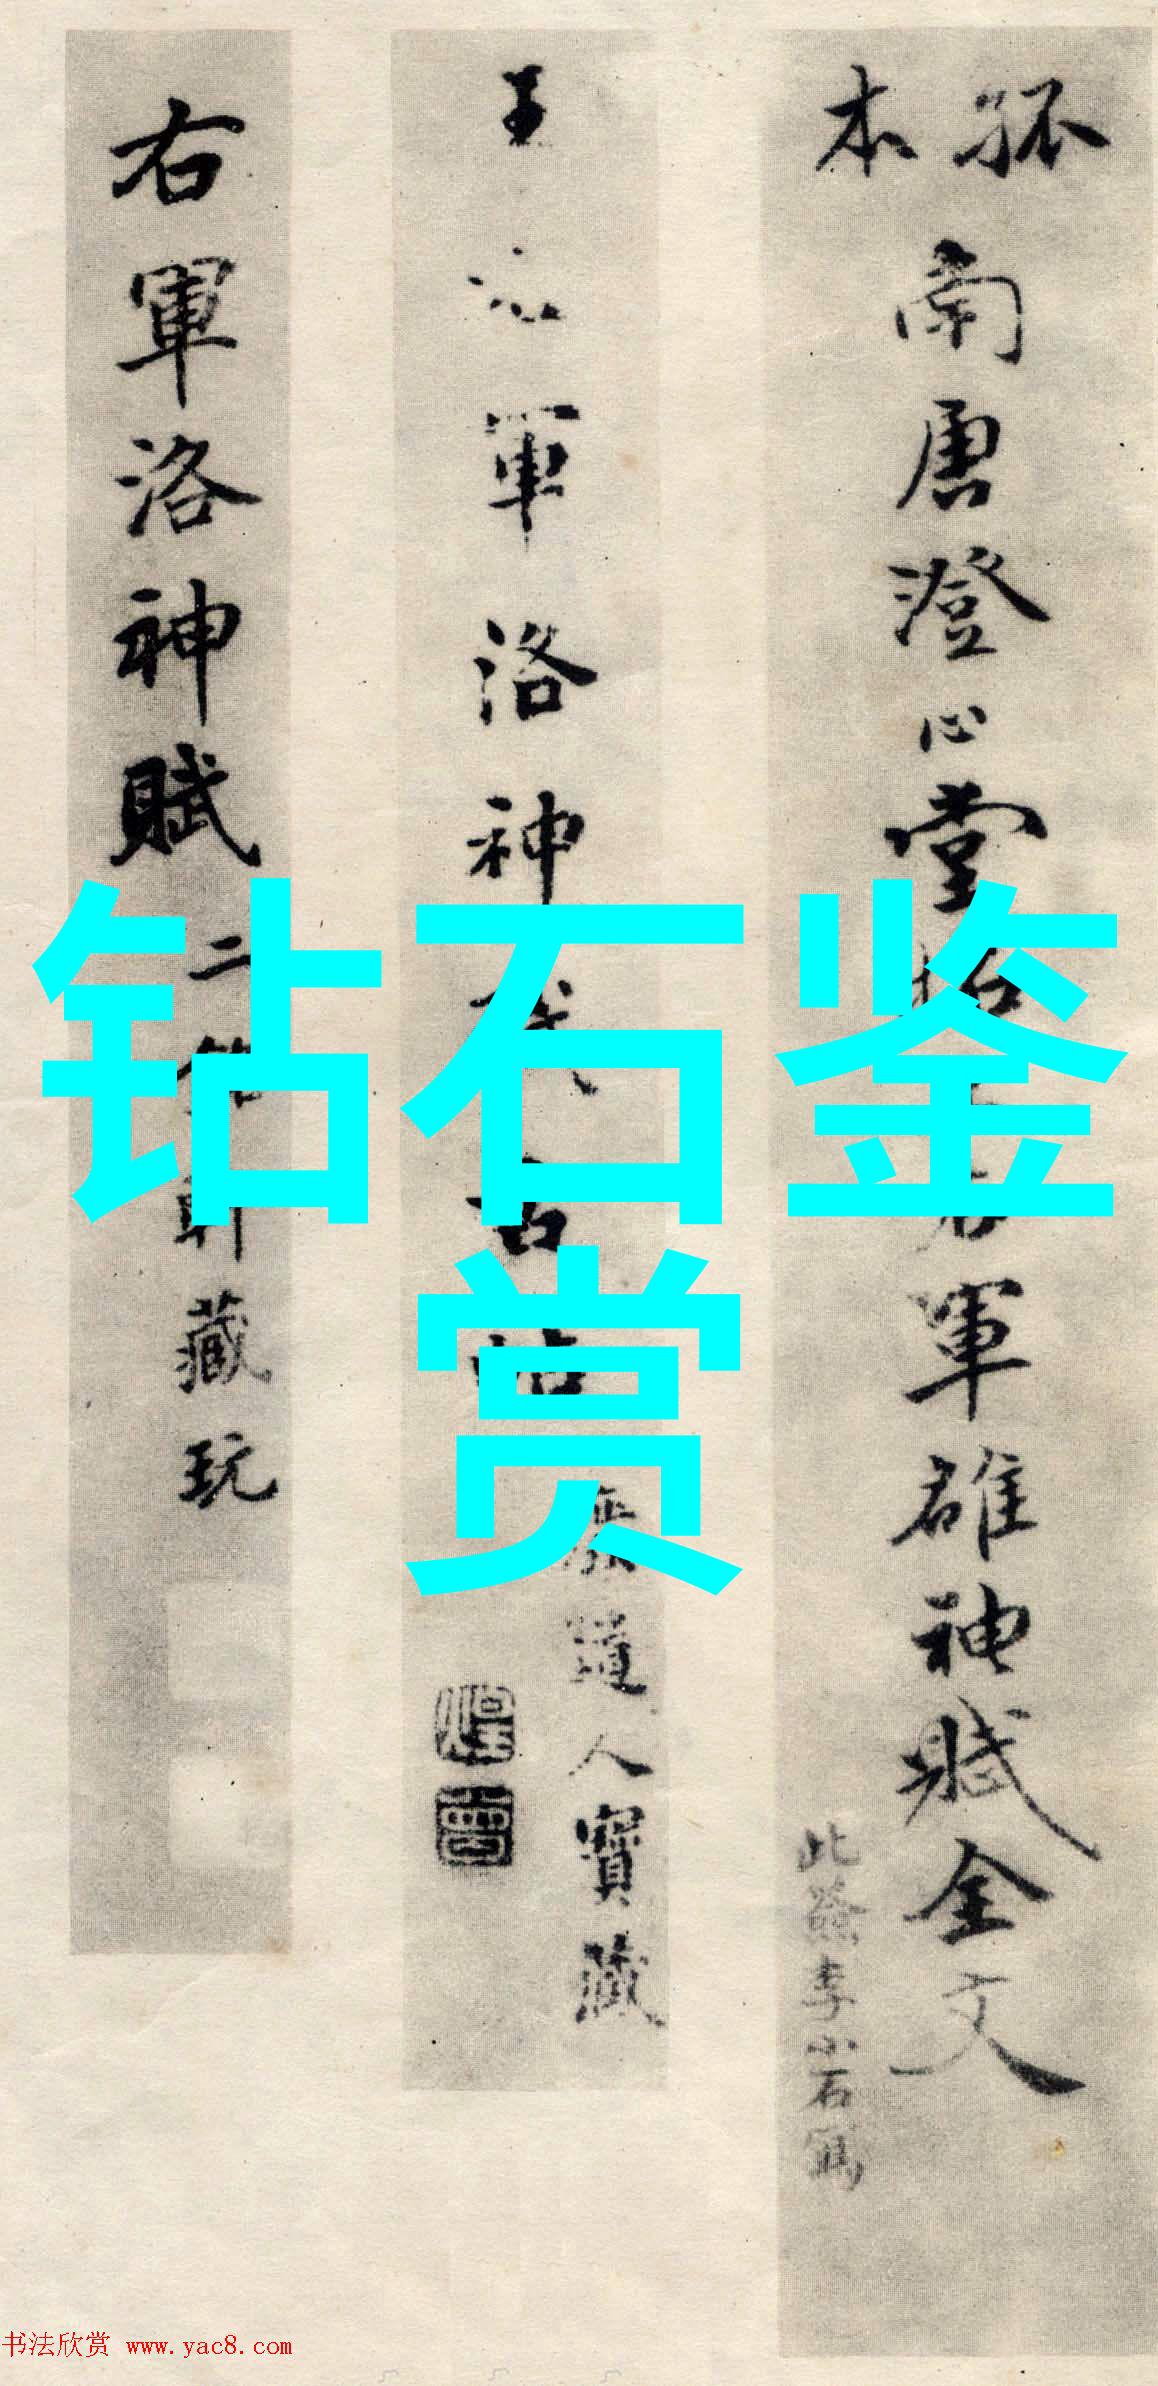 孤本
南唐澄心堂拓右軍雒神賦全文
此籤李小石寫
王右軍洛神賦古帖
道人寶藏
右軍洛神賦
二 軒藏玩
钻石鉴
赏
书法欣赏 www.yac8.com